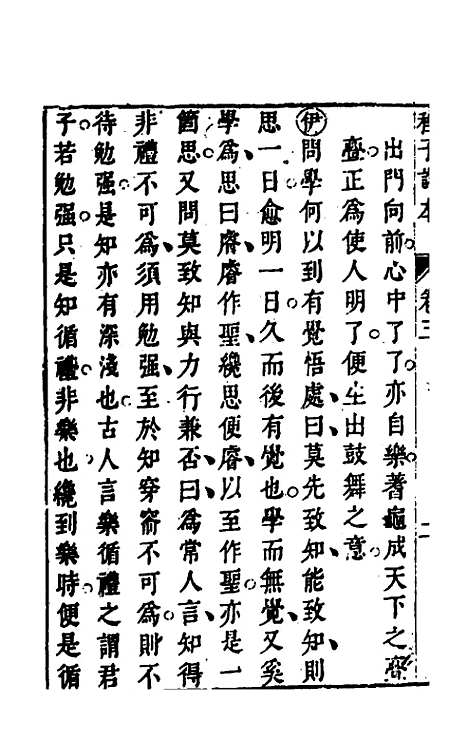 程子詳本 卷三
出門向前心中了了亦自樂蓍龜成天下之亹
亹正爲使人明了便生出鼓舞之意
伊問學何以到有覺悟處曰莫先致知能致知則
思一日愈明一日久而後有覺也學而無覺又奚
學爲思曰睿睿作聖纔思便睿以至作聖亦是一
箇思又問莫致知與力行兼否曰爲常人言知得
非禮不可爲須用勉强至於知穿窬不可爲則不
待勉强是知亦有深淺也古人言樂循禮之謂君
子若勉强只是知循禮非樂也纔到樂時便是循